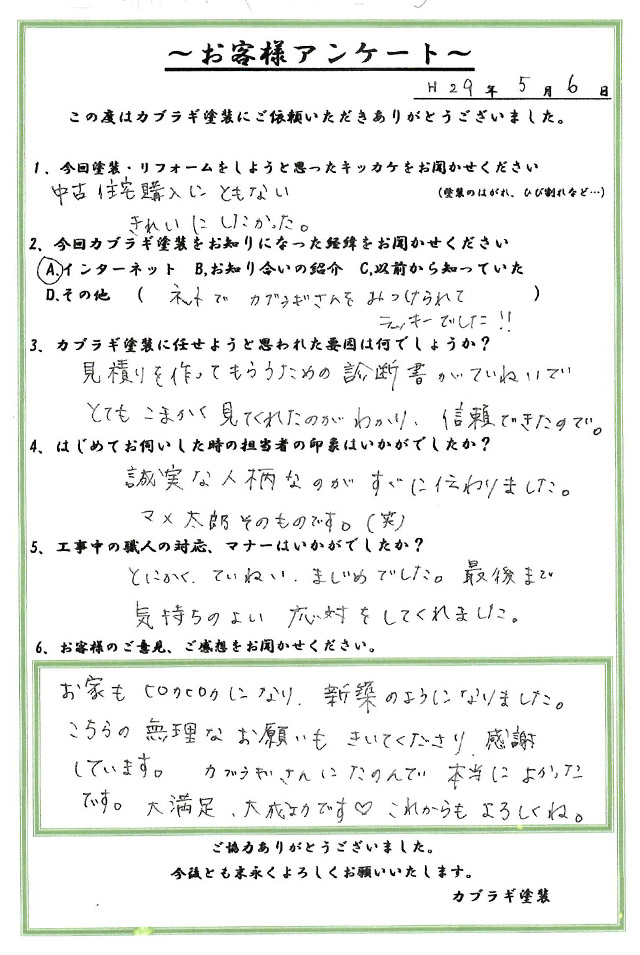 ～お客様アンケート～
H29年 5月 6日
この度はカブラギ塗装にご依頼いただきありがとうございました。
1、今回塗装・リフォームをしようと思ったキッカケをお聞かせください
中古住宅購入にともない
(塗装のはがれ、ひび割れなど…)
きれいにしたかった。
2、今回カブラギ塗装をお知りになった経緯をお聞かせください
A,インターネット B,お知り合いの紹介 C,以前から知っていた
D,その他 ( ネットで カブラギさんを みつけられて )
ラッキーでした!!
3、カブラギ塗装に任せようと思われた要因は何でしょうか?
見積りを作ってもらうための診断書がていねいで
とてもこまかく見てくれたのがわかり、信頼できたので。
4、はじめてお伺いした時の担当者の印象はいかがでしたか?
誠実な人柄なのがすぐに伝わりました。
マメ太郎そのものです。(笑)
5、工事中の職人の対応、マナーはいかがでしたか?
とにかく、ていねい、まじめでした。最後まで
気持ちのよい応対をしてくれました。
6、お客様のご意見、ご感想をお聞かせください。
お家もピカピカになり、新築のようになりました。
こちらの無理なお願いもきいてくださり、感謝
しています。カブラギさんにたのんで本当によかった
です。大満足、大成功です♡これからもよろしくね。
ご協力ありがとうございました。
今後とも末永くよろしくお願いいたします。
カブラギ塗装